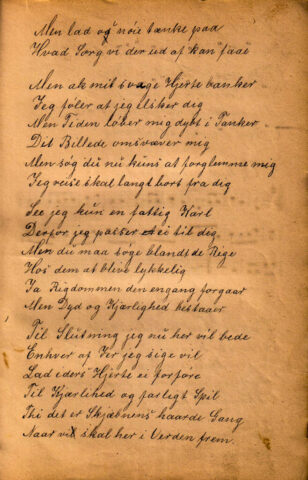 Men lad os nöie tænke paa
Hvad Sorg vi der ud af kan faae
Men ak mit svage Hjerte banker
Jeg föler at jeg elsker dig
Men Tiden löber mig dybt i Tanker
Dit Billede omsvæver mig
Men søg du nu kuns at forglemme mig
Jeg reise skal langt bort fra dig
See jeg kun en fattig Karl
Derfor jeg passer ei til dig
Men du maa söge blandt de Rige
Hos dem at blive lykkelig
Ja Rigdommen den engang forgaar
Men Dyd og Kjærlighed bestaaer
Til Slutning jeg nu her vil bede
Enhver af Jer jeg sige vil
Lad eders Hjerte ei forföre
Til Kjærlihed og farligt Spil
Thi det er Skjæbnens haarde Gang
Naar vi skal her i Verden frem.